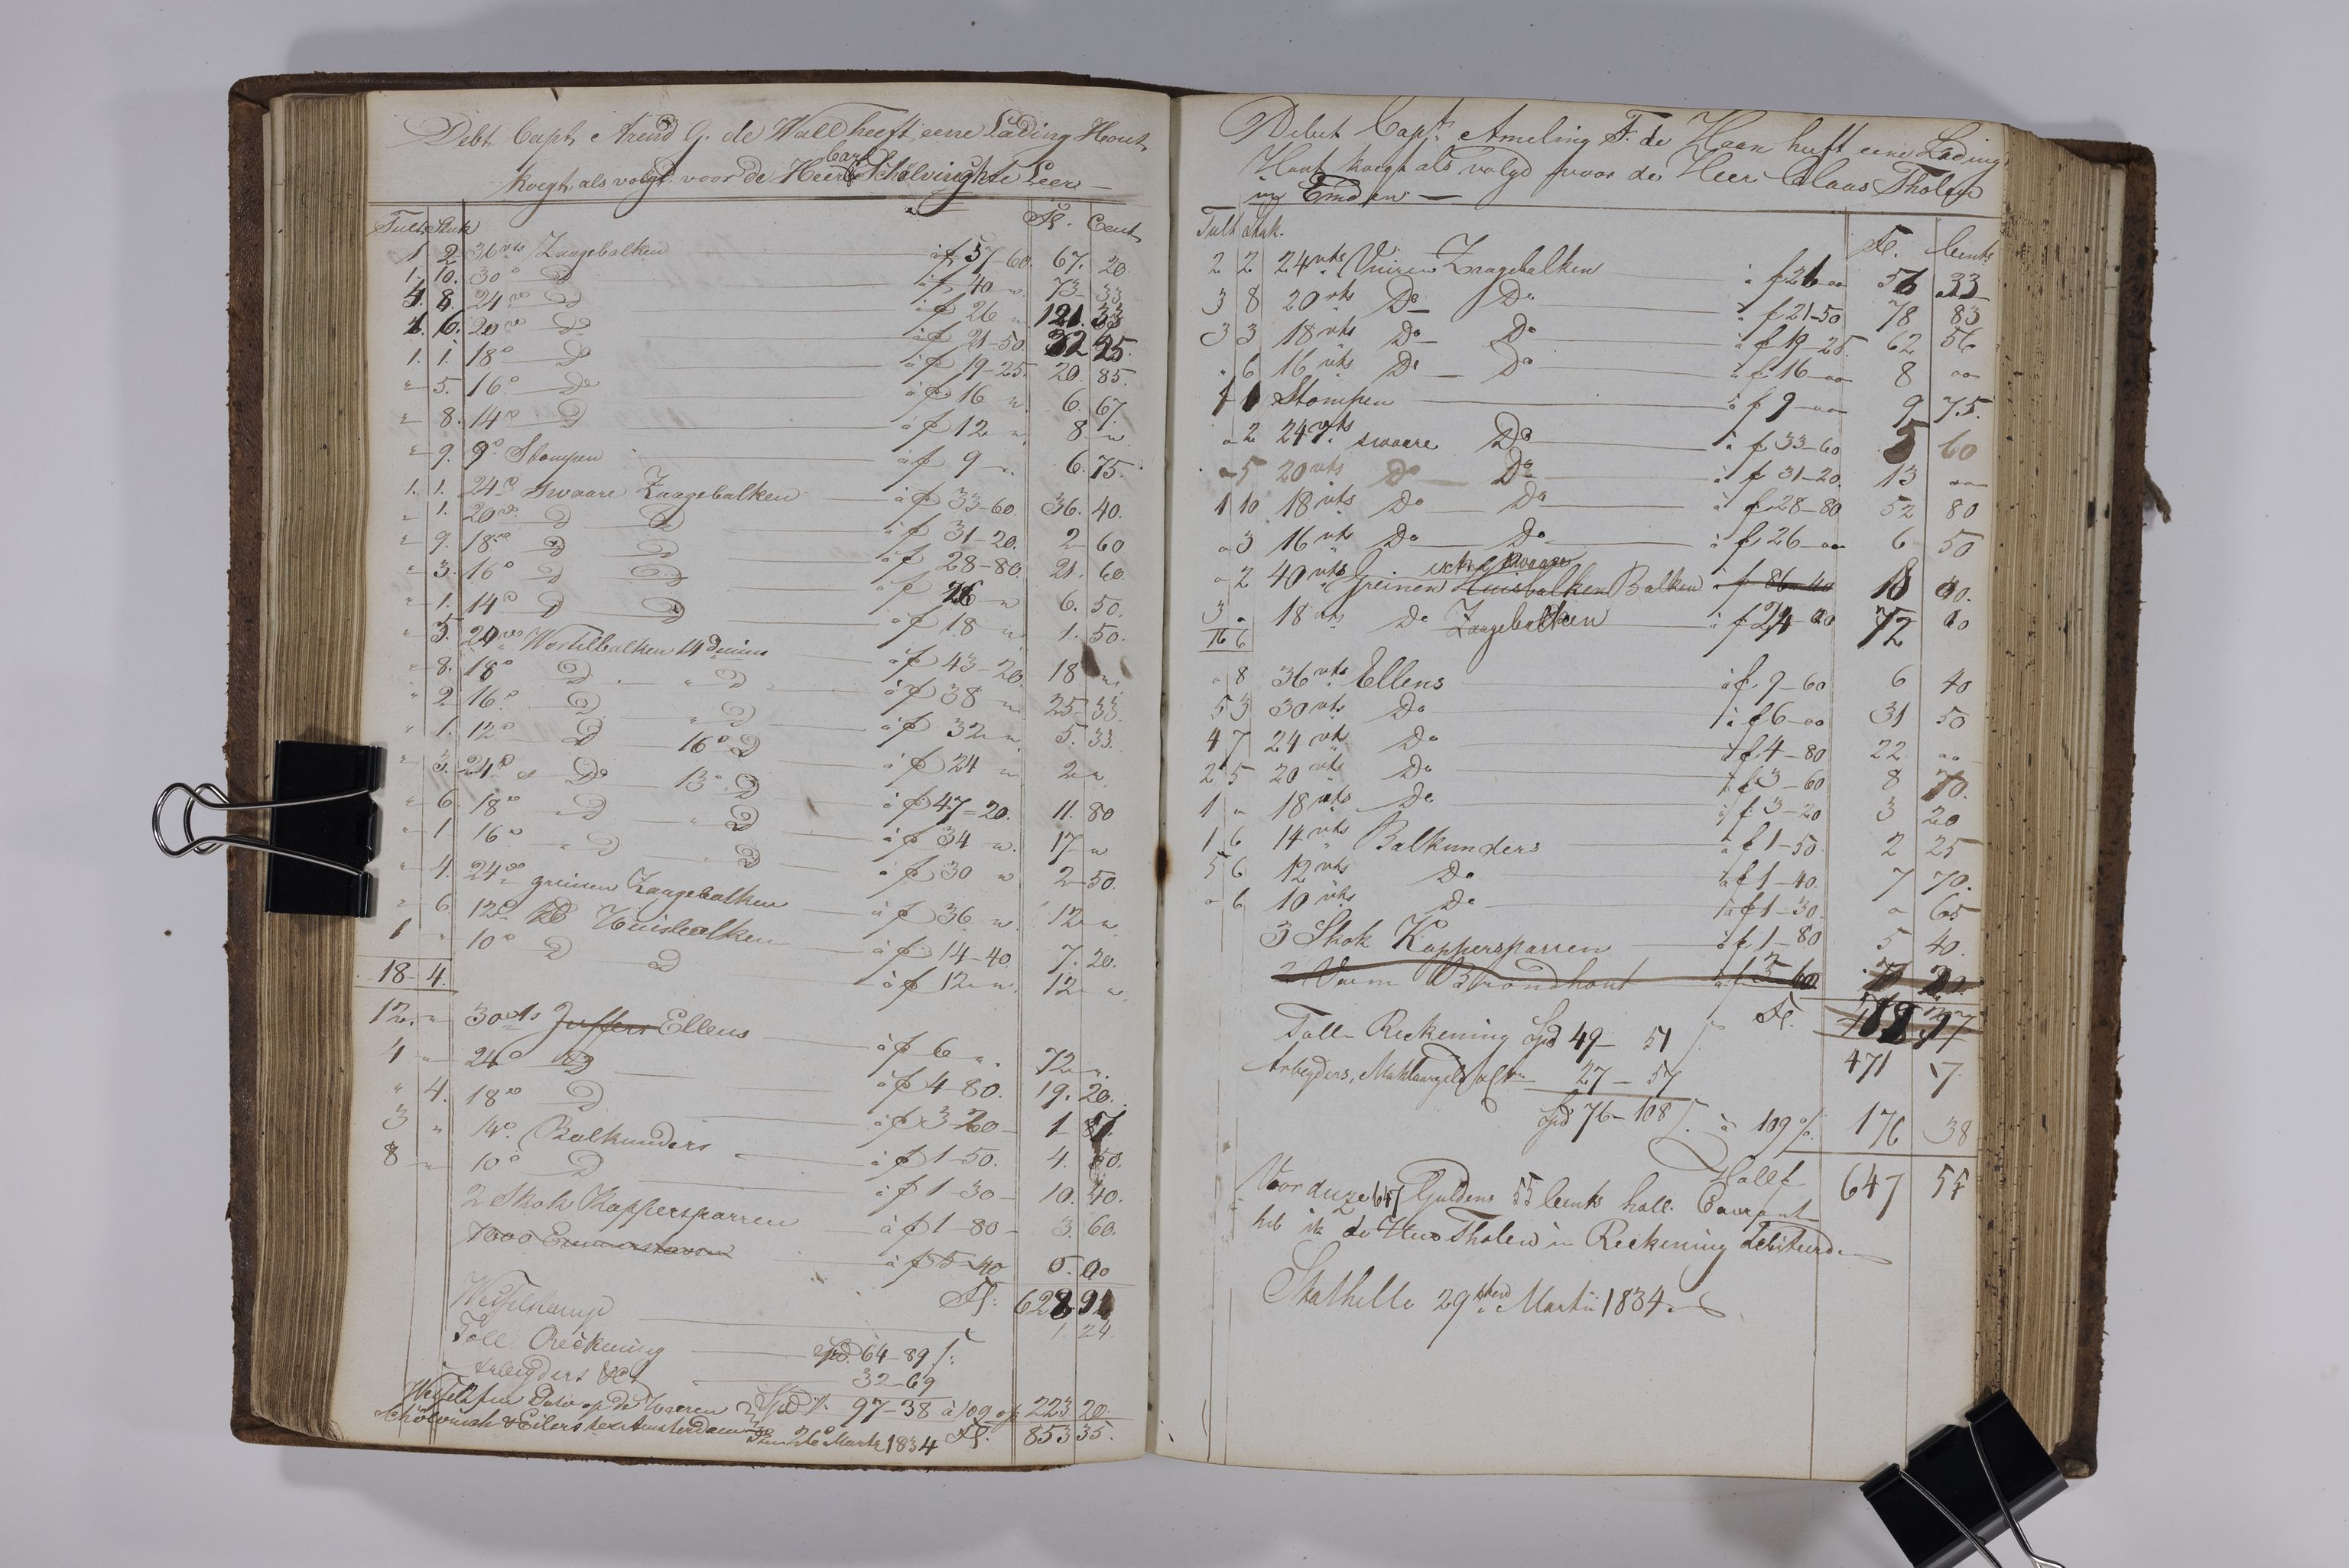 Debt. Capt. Arend G. de Wall heeft eene Lading Hout
Carl
koegt als volgt voor de Heer Schölvinck te Leer —
Tult Stuk Fl. Cent
1. 2 36 vts Zaagebalken à f 57-60. 67. 20
1. 10. 30 " D à f 40 " 73 33
4. 8. 24 vo D à f 26 " 121. 33
1. 6. 20 vo D à f 21-50 32 25.
1. 1. 18 " D à f 19-25. 20. 85.
" 5. 16 " Do à f 16 " 6. 67
" 8. 14 " D à f 12 " 8 "
" 9. 9 " Stompen à f 9 " 6. 75.
1. 1. 24 " Swaare Zaagebalken à f 33-60. 36. 40.
" 1. 20 vo D D à f 31-20. 2 60
" 9. 18 vo D D à f 28-80. 21. 60.
" 3. 16 " D D à f 26 " 6. 50.
" 1. 14 " D D à f 18 " 1. 50.
" 5. 20 vo Wortelbalken 14 duims à f 43-20 18 "
" 8. 18 " D " D à f 38 " 25 33.
" 2 16 " D " D à f 32 " 5. 33.
" 1. 12 " D 16 " D à f 24 " 2 "
" 3. 24 " Do 13 " D à f 47-20. 11. 80
" 6 18 " D " D à f 34 " 17 "
" 1 16 " D " D à f 30 " 2 50.
" 4. 24 " greinen Zaagebalken à f 36 " 12 "
" 6. 12 " D Huisbalken à f 14-40 7. 20.
1 " 10 " D D à f 12 " 12 "
18 4.
12. " 30 vts Juffers Ellens à f 6 " 72 "
4 " 24 " D à f 4 80. 19. 20.
" 4. 18 " D à f 3 20 1
3 " 14 " Balkunders à f 1-50. 4. 50.
8 " 10 " D à f 1 30 10. 40.
2 Skok Kappersparren à f 1-80 3. 60.
1000 à f 5 40 0. 00
Fl. 628 91
Wesselstemp 1. 24.
Toll Reckening Spd. 64-89 f:
Arbeyders &c 32-69
Wessel per Dato op de Heeren Spd. 97-38 à 109 223 20.
Schölvinck & Eilers te Amsterdam Martz 1834 Fl. 853 35.
Debet Capt. Ameling F. de Haan heeft eene Lading
Hout koegt als volgd voor de Heer Claas Tholen
in Emden —
Tult Stuk. Fl. Cents
2 2 24 vts Vuiren Zaagebalken à f 26-00 56 33
3 8 20 vts Do Do à f 21-50 78 83
3 3 18 vts Do Do à f 19-25 62 56
" 6 16 vts Do Do à f 16-00 8 00
1 1 Stompen à f 9-00 9 75.
" 2 24 vts swaare Do à f 33-60 5 60
" 5 20 vts Do Do à f 31-20. 13 00
1 10 18 vts Do Do à f 28-80 52 80
" 3 16 vts Do Do à f 26-00 6 50
swaare
" 2 40 vts Greinen Huisbalken Balken à f 86-40 18 00.
3 " 18 vts Do Zaagebalken à f 24-00 72 00
16 6
" 8 36 vts Ellens à f 9-60 6 40
5 3 30 vts Do à f 6-00 31 50
4 7 24 vts Do à f 4-80 22 00
2 5 20 vts Do à f 3-60 8 70.
1 " 18 vts Do à f 3-20 3 20
1 6 14 vts Balkunders à f 1-50 2 25
5 6 12 vts Do à f 1-40. 7 70.
" 6 10 vts Do à f 1-30. " 65
3 Skok Kappersparren à f 1-80 5 40.
2 Vaem Brandhout à f 3 60 7 20.
Fl.
Toll Reckening Spd 49- 51 471 17
Arbeyders, 27 - 57
Spd 76-108 f. à 109 %. 176 38
Hollf 647 55
Voor deze 647 Guldens 55 Cents holl. Courant
heb ik de Heer Tholen in Reckening debiteerd.
Stathelle 29sten Martii 1834.